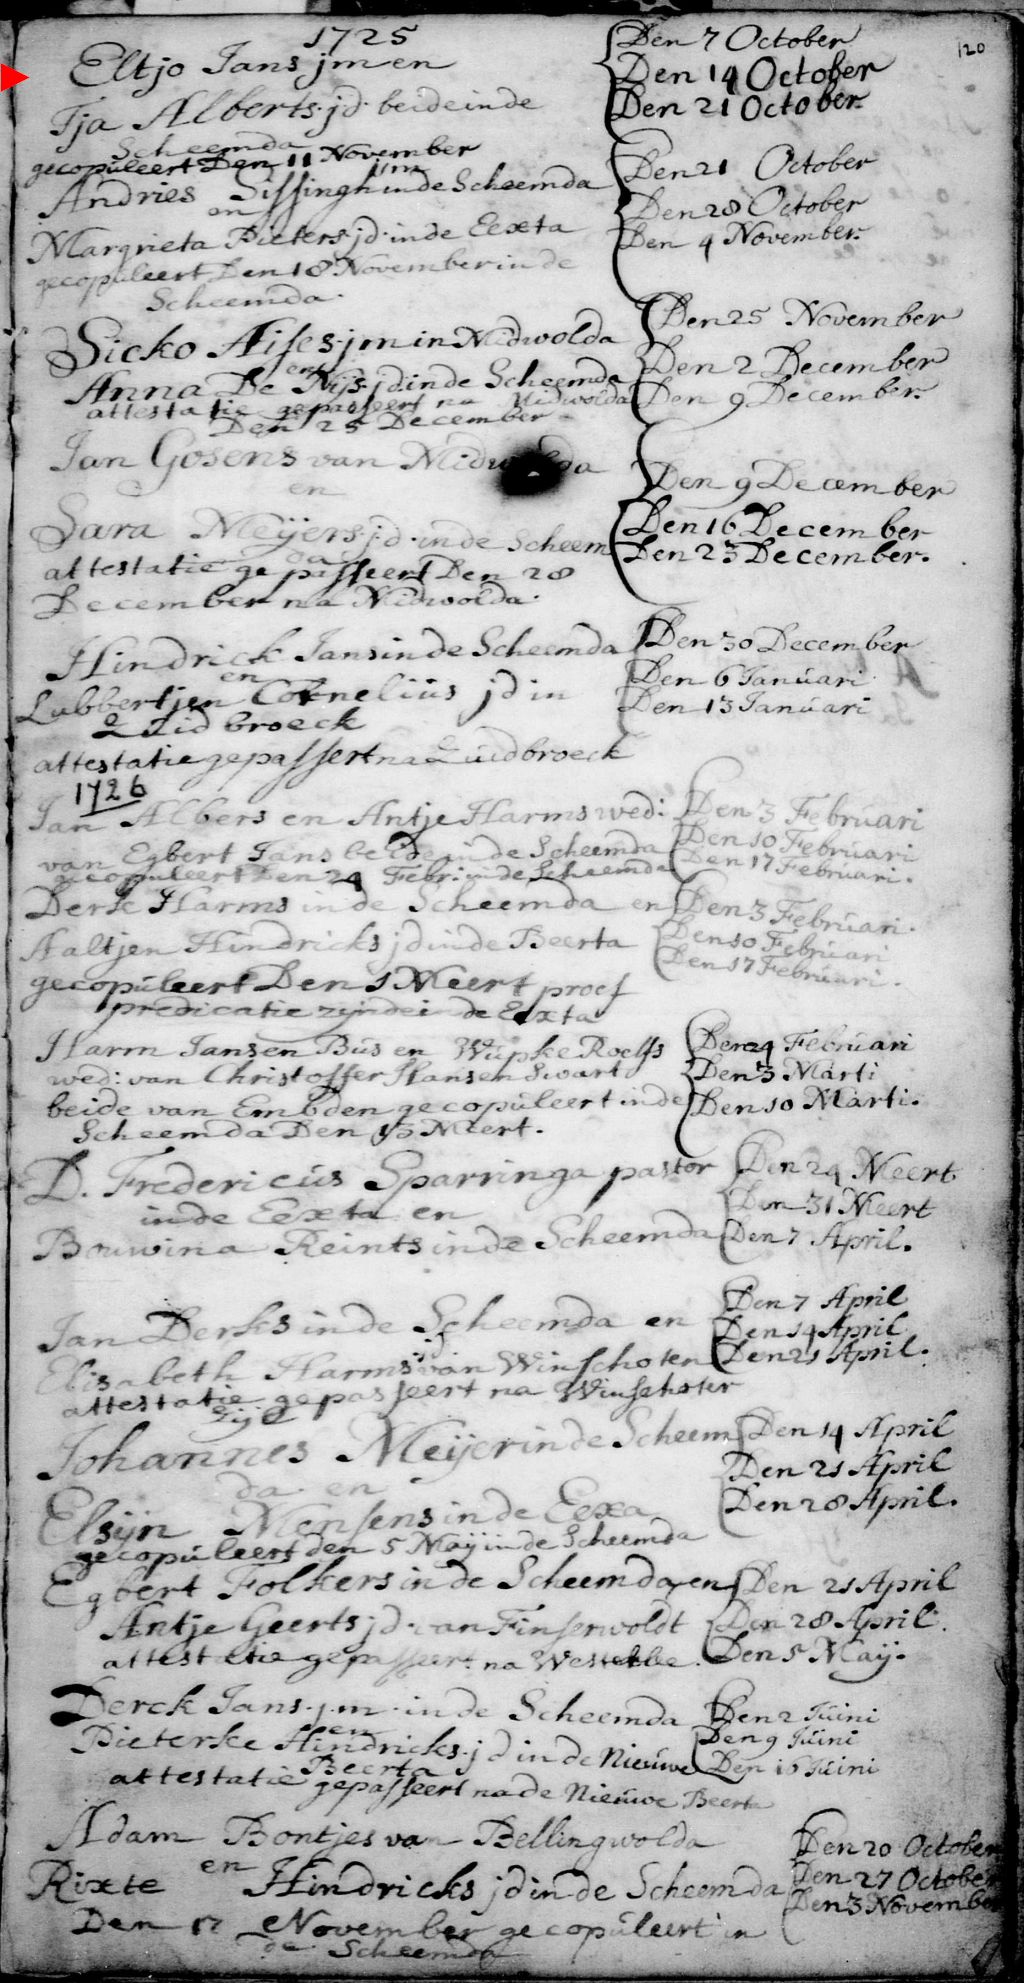 120
1725
Eltjo Jans jm en
Tja Alberts jd beide in de
Scheemda
gecopuleert Den 11 November
Den 7 October
Den 14 October
Den 21 October
Andries Sissingh jm in de Scheemda
en
Margrieta Pieters jd in de Eexta
gecopuleert Den 18 November in de
Scheemda
Den 21 October
Den 28 October
Den 4 November
Sicko Aises jm in Midwolda
en
Anna De Nijs jd in de Scheemda
attestatie gepasseert na Midwolda
Den 25 December
Den 25 November
Den 2 December
Den 9 December
Jan Gosens van Midwolda
en
Sara Meijers jd in de Scheem
da
attestatie gepasseert Den 28
December na Midwolda
Den 9 December
Den 16 December
Den 23 December.
Hindrick Jans in de Scheemda
en
Lubbertjen Cornelius jd in
Zuidbroeck
attestatie gepassert na Zuidbroeck
Den 30 December
Den 6 Januari
Den 13 Januari
1726
Jan Albers en Antje Harms wed:
van Egbert Jans beide in de Scheemda
gecopuleert Den 24 Febr: in de Scheemda
Den 3 Februari
Den 10 Februari
Den 17 Februari.
Derk Harms in de Scheemda en
Aaltjen Hindricks jd in de Beerta
gecopuleert Den 1 Meert proef
predicatie zijnde in de Eexta
Den 3 Februari.
Den 10 Februari
Den 17 Februari.
Harm Jansen Bus en Wupke Roelfs
wed: van Christoffer Hansen Swart
beide van Embden gecopuleert in de
Scheemda Den 13 Meert.
Den 24 Februari
Den 3 Marti
Den 10 Marti.
D. Fredericus Sparringa pastor
in de Eexta en
Bouwina Reints in de Scheemda
Den 24 Meert
Den 31 Meert
Den 7 April.
Jan Derks in de Scheemda en
Elisabeth Harms jd van Winschoten
attestatie gepasseert na Winschoter
Zijl
Den 7 April
Den 14 April
Den 21 April.
Johannes Meijer in de Scheem
da en
Elsijn Mensens in de Eexa
gecopuleert den 5 Maij in de Scheemda
Den 14 April
Den 21 April
Den 28 April.
Egbert Folkers in de Scheemda en
Antje Geerts jd van Finserwoldt
attestatie gepasseert na
Den 21 April
Den 28 April.
Den 5 Maij.
Derck Jans jm in de Scheemda
en
Pieterke Hindricks jd in de Nieuwe
Beerta
attestatie gepasseert na de Nieuwe Beerta
Den 2 Juini
Den 9 Juini
Den 16 Juini
Adam Bontjes van Bellingwolda
en
Rixte Hindricks jd in de Scheemda
Den 17 November gecopuleert in
de Scheemda
Den 20 October
Den 27 October
Den 3 November